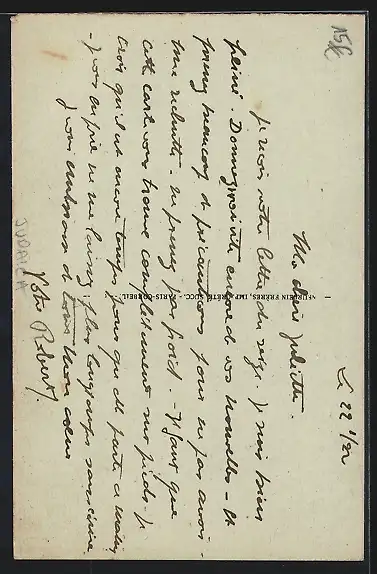 Le 22 1/22
Ma chère Juliette.
Je reçois votre lettre du seize. Je suis bien
peiné. Donnez moi vite encore de vos nouvelles - et
prenez beaucoup de précautions pour ne pas avoir
une rechute - ne prenez pas froid - Il faut que
cette carte vous trouve complètement sur pieds. Je
crois qu'il est encore temps pour que elle parte
- Je vous en prie ne me laissez plus longtemps sans
Je vous embrasse de tout mon cœur
Votre Robert.
NEURDEIN FRÈRES, IMP. - CRÉTÉ SUCC. - PARIS-CORBEIL
JUDAICA
15f